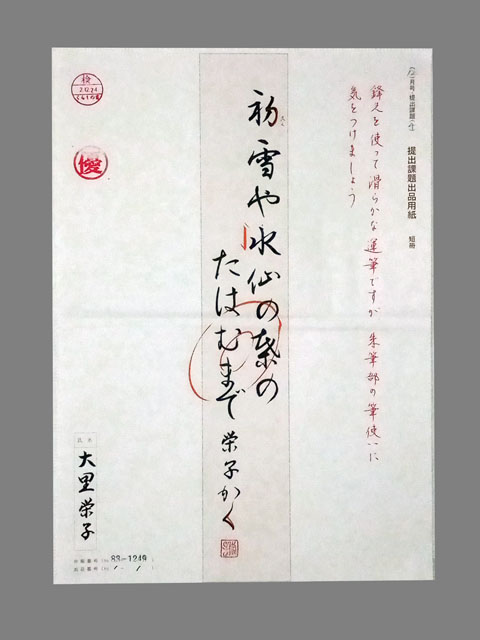 提出課題出品用紙 短冊
鋒先を使って滑らかな運筆ですが 朱筆部の筆使いに
気をつけましょう
初雪や水仙の葉の
たはむまで 栄子かく
検
優
氏名
大里栄子
83-1249